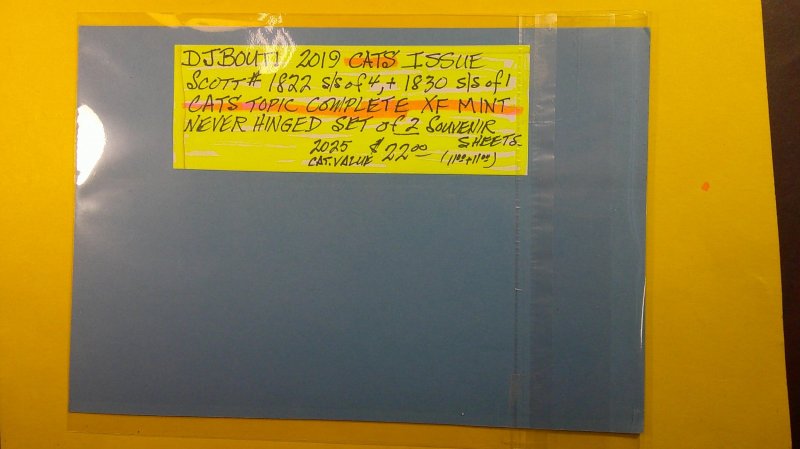 DJ.BOUTI 2019 CATS ISSUE
SCOTT# 1822 s/s of 4, + 1830 s/s of 1
CATS TOPIC COMPLETE XF MINT
NEVER HINGED SET of 2 SOUVENIR
SHEETS
2025 $22.00
CAT. VALUE (11.00+11.00)